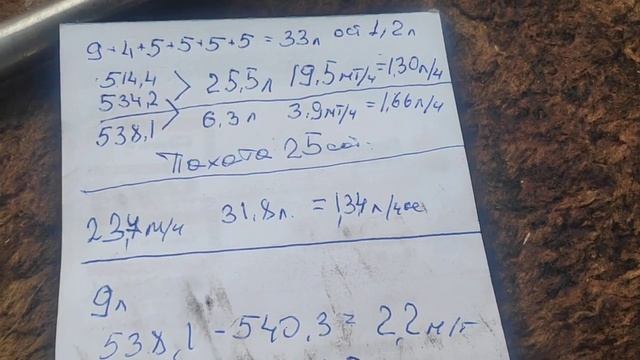 9+4+5+5+5+5 = 33л ост 1,2л
514,4
534,2 > 25,5л 19,5мт/ч = 1,30л/ч
538,1 > 6,3л 3,9мт/ч = 1,66л/ч
Пахота 25сот.
23,7м/ч 31,8л. = 1,34л/час
9л
538,1 - 540,3 = 2,2м/т